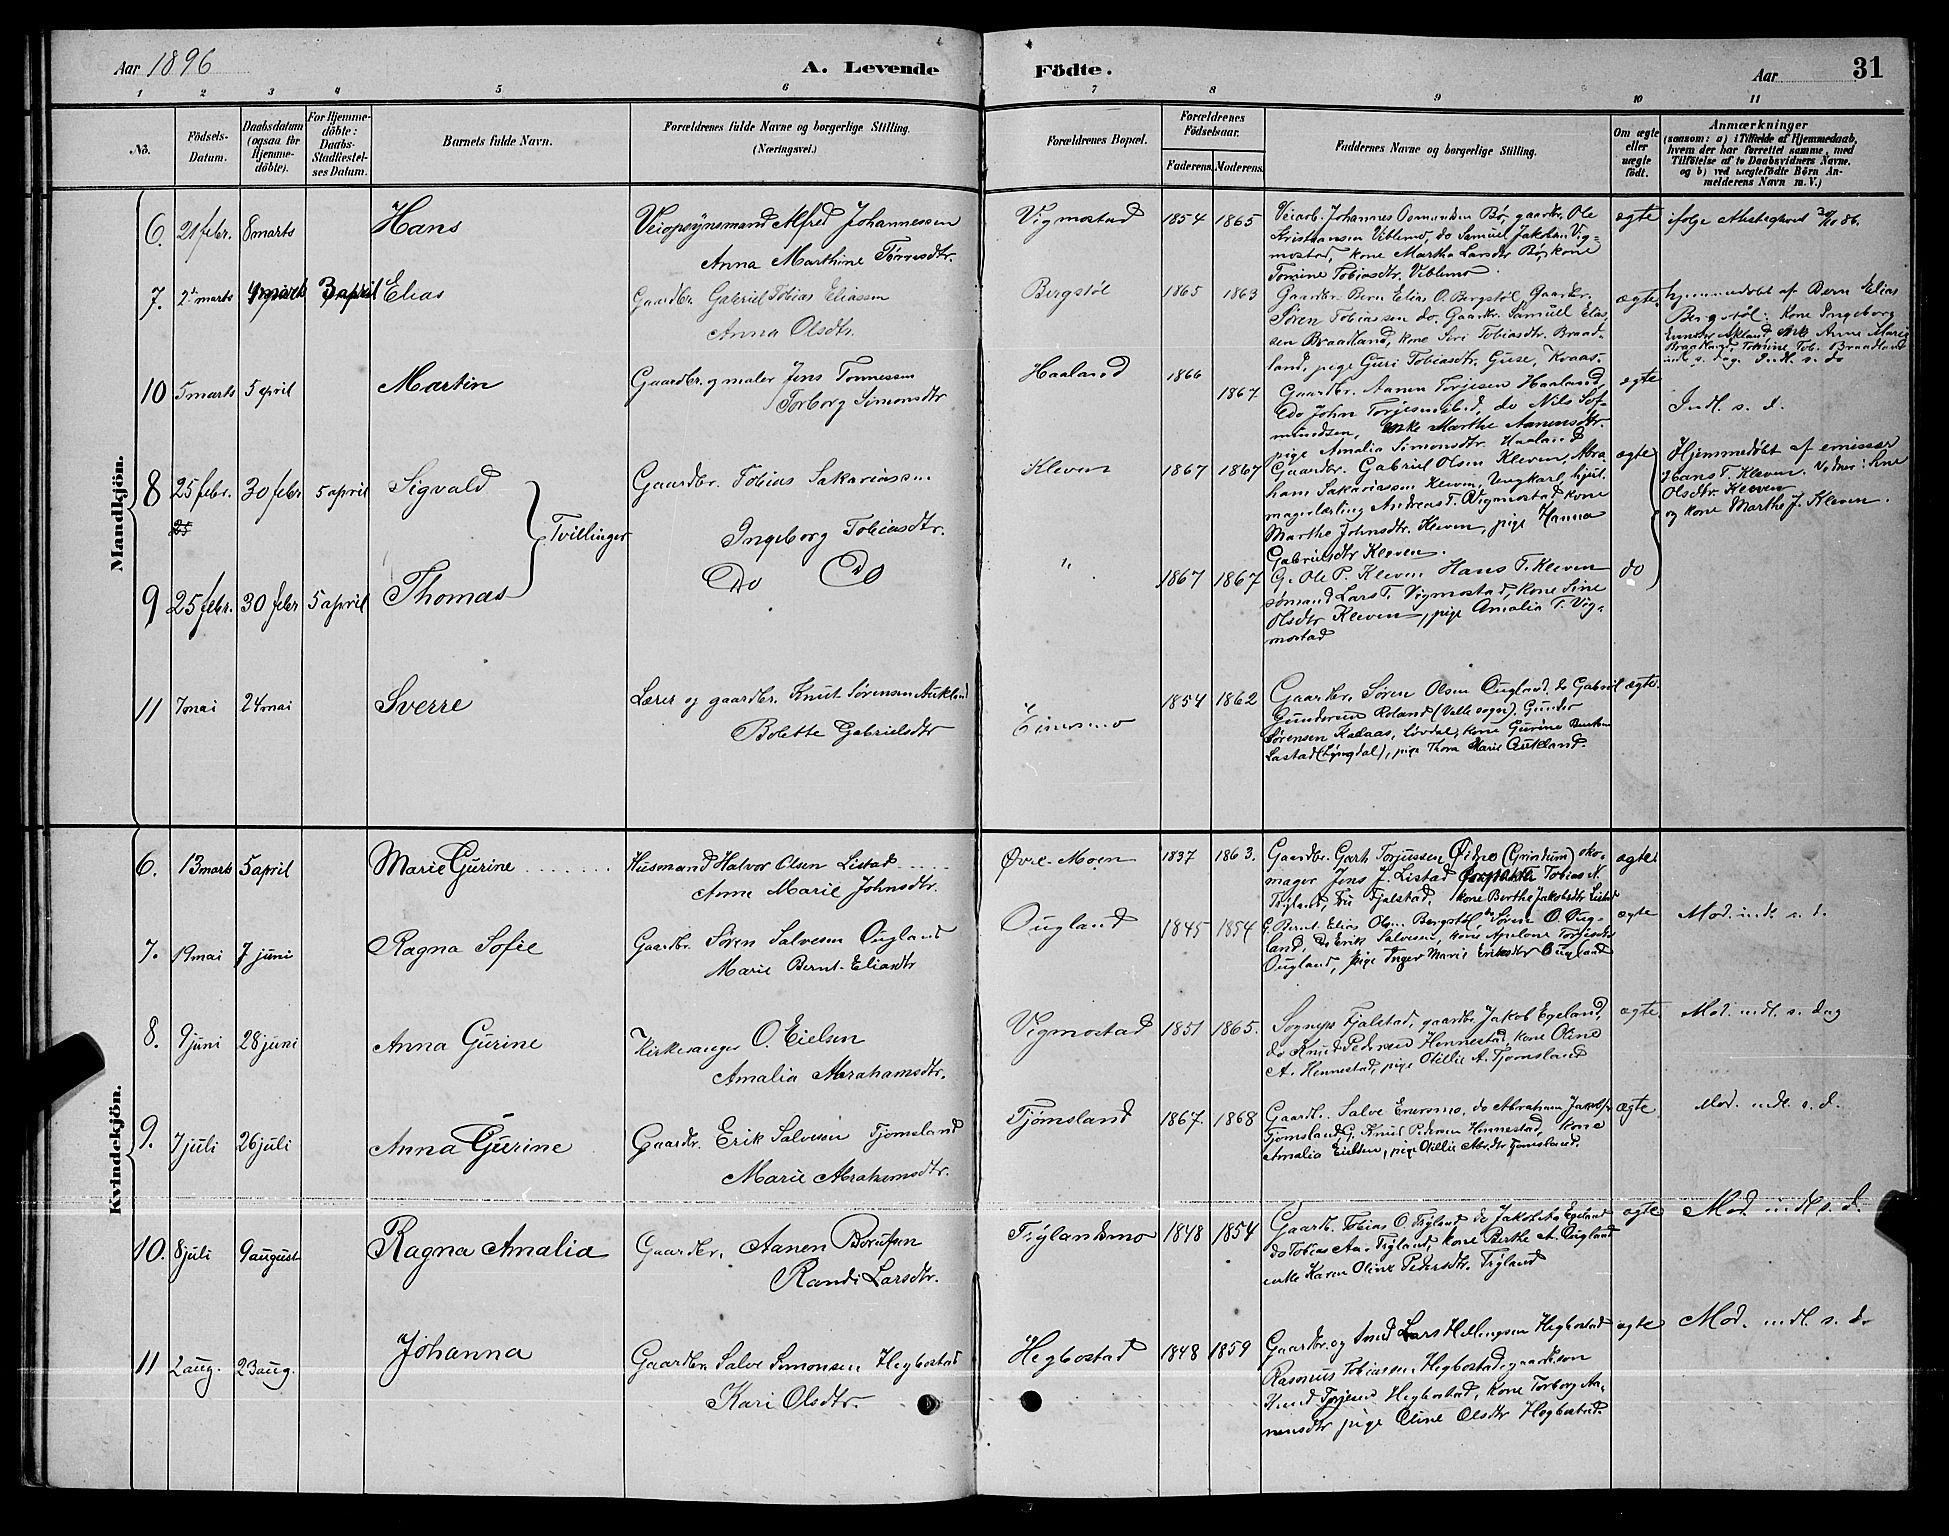 Aar 1896
A. Levende Födte.
Aar 31
1 2 3 4 5 6 7 8 9 10 11
No.
Födsels-Datum.
Daabsdatum (ogsaa for Hjemme-döbte).
For Hjemme-döbte: Daabs-Stadfæstel-ses Datum.
Barnets fulde Navn.
Forældrenes fulde Navne og borgerlige Stilling.
(Næringsvei.)
Forældrenes Bopæl.
Forældrenes Födselsaar.
Faderens. Moderens.
Faddernes Navne og borgerlige Stilling.
Om ægte eller uægte födt.
Anmærkninger
(saasom: a) i Tilfælde af Hjemmedaab,
hvem der har forrettet samme, med
Tilföielse af to Daabsvidners Navne.
og b) ved uægtefödte Börn An-
melderens Navn m. V.)
Mandkjön.
6. 21 febr. 8 marts Hans
Veiopsynsmand Alfred Johannessen
Anna Marthine Tørresdtr.
Vigmostad 1854 1865
Veiarb. Johannes Osmundsen Bø, gaardbr. Ole
Kristiansen Viblemo, do Samuel Jakobsen Vig-
mostad, kone Martha Larsdtr Bø, kone
Tomine Tobiasdtr. Viblemo.
ægte
7. 2 marts 4 marts 3 april Elias
Gaardbr. Gabriel Tobias Eliassen
Anna Olsdtr.
Bergstøl 1865 1863
Gaardbr. Bern Elias O. Bergstøl, Gaardbr.
Søren Tobiassen do. Gaardbr. Samuel Elias-
sen Braadland, kone Siri Tobiasdtr. Braad-
land, pige Guri Tobiasdtr. Guse,
ægte.
hjemmedøbt af Bern Elias
Bergstøl. Kone Ingeborg
10 5 marts 5 april Martin
Gaardbr. og maler Jens Tønnessen
Torborg Simonsdtr
Haaland 1866 1867
Gaardbr. Aanen Torjesen Haaland,
do John Torjesen ibid, do Nils Sof-
mundsen, enke Marthe Aanensdtr.
pige Amalia Simonsdtr. Haaland
ægte
Indl. s. d.
8 25 febr. 30 febr 5 april Sigvald
Tvillinger
Gaardbr. Tobias Sakariassen
Ingeborg Tobiasdtr.
Kleven 1867 1867
Gaardbr. Gabriel Olsen Kleven, Abra-
ham Sakariassen Kleven, Ungkarl, hjul-
magerlærling Andreas T. Vigmostad, kone
Marthe Johnsdtr. Kleven, pige Hanna
Gabrielsdtr Kleven.
ægte
Hjemmedøbt af emissær
Hans T. Kleven. Vidner: Sine
Olsdtr. Kleven
og kone Marthe J. Kleven.
9 25 febr. 30 febr 5 april Thomas
Do Do
" 1867 1867
G. Ole P. Kleven Hans T. Kleven
sømand Lars T. Vigmostad, kone Sine
Olsdtr Kleven, pige Amalia T. Vig-
mostad
do
11 7 mai 24 mai Sverre
Lærer og gaardbr. Knut Sørensen Aukland
Bolette Gabrielsdtr
Eineromo 1854 1862
Gaardbr. Søren Olsen Ougland, do Gabriel
Gundersen Roland (Valle sogn), Gunder
Sørensen Kalaas, Løvdal, kone Gurine
Lastad (Lyngdal), pige Thora Marie Aukland.
ægte.
Kvindekjön.
6. 13 marts 5 april Marie Gurine
Husmand Halvor Olsen Listad
Anne Marie Johnsdtr.
Øvre-Moen 1837 1863.
Gaardbr. Garth Torjussen Øidne (Grindum) sko-
mager Jens J. Listad Tobias N.
Trygland, Fru Fjalstad, kone Berthe Jakobsdtr Listad
ægte
7. 19 mai 7 juni Ragna Sofie
Gaardbr. Søren Salvesen Ougland
Marie Bernt-Eliasdtr
Ougland 1845 1854
G. Bernt Elias Olsen Bergstøl do Søren O. Oug-
land, do Erik Salvesen, kone Apelone Torjusdtr
Ougland, pige Inger Marie Eriksdtr Ougland
ægte
Mod. indl. s. d.
8. 9 juni 28 juni Anna Gurine
Kirkesanger O. Eielsen
Amalia Abrahamsdtr.
Vigmostad 1851 1865.
Sognepr. Fjalstad, gaardbr. Jakob Egeland,
do Knud Pedersen Hennestad, kone Oline
A. Hennestad, pige Otillie A. Tjomsland
ægte
Mod. indl. s. dag
9. 7 juli 26 juli Anna Gurine
Gaardbr. Erik Salvesen Tjomsland
Marie Abrahamsdtr.
Tjømsland 1867. 1868
Gaardb. Salve Eneromo, do Abraham Jakobs.
Tjomsland, G. Knud Pedersen Hennestad, kone
Amalia Eielsen, pige Otillie Abr.dtr Tjomsland.
ægte
Mod. indl. s. d.
10. 8 juli 9 august Ragna Amalia
Gaardbr. Aanen Børufsen
Randi Larsdtr.
Trylandsmo 1848 1854
Gaardb. Tobias O. Tryland, do Jakob Aa Egeland
do Tobias Aa. Tryland, kone Berthe A. Ougland
enke Karen Oline Pedersdtr. Tryland
ægte
Mod. indl. s. d.
11 2 aug. 23 aug. Johanna
Gaardbr. Salve Simonsen Hegbostad
Kari Olsdtr.
Hegbostad 1848 1859
Gaardbr. og smed Lars Hellingsen Hegbostad
Rasmus Tobiassen Hegbostad, gaardb.søn
Knud Torjesen Hegbostad, kone Torborg Aa-
nensdtr pige Oline Olsdtr Hegbostad.
ægte
Mod. indl. s. d.